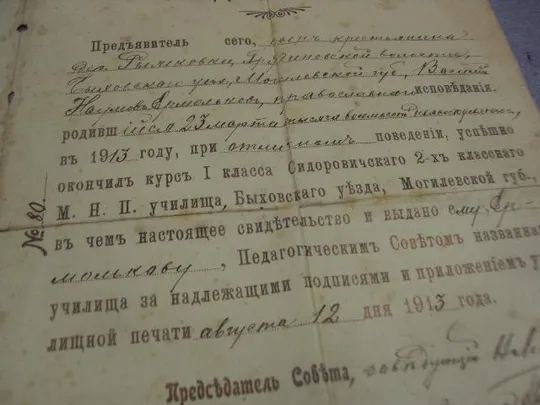 Предъявитель сего, сынъ крестьянина
дер. волости,
Быховскаго уѣз., Могилевской губ.,
Наумовъ православнаго исповѣданія.
родивш ійся 23 марта тысяча восемьсотъ
въ 1913 году, при отличномъ поведеніи, успѣшно
окончилъ курсъ I класса Сидоровичскаго 2-хъ класснаго
М. Н. П. училища, Быховскаго уѣзда, Могилевской губ.,
въ чемъ настоящее свидѣтельство и выдано ему, Ер-
молькову, Педагогическимъ Совѣтомъ названна
училища за надлежащими подписями и приложеніемъ у
лищной печати августа 12 дня 1913 года.
Предсѣдатель Совѣта, завѣдующій
№ 80.